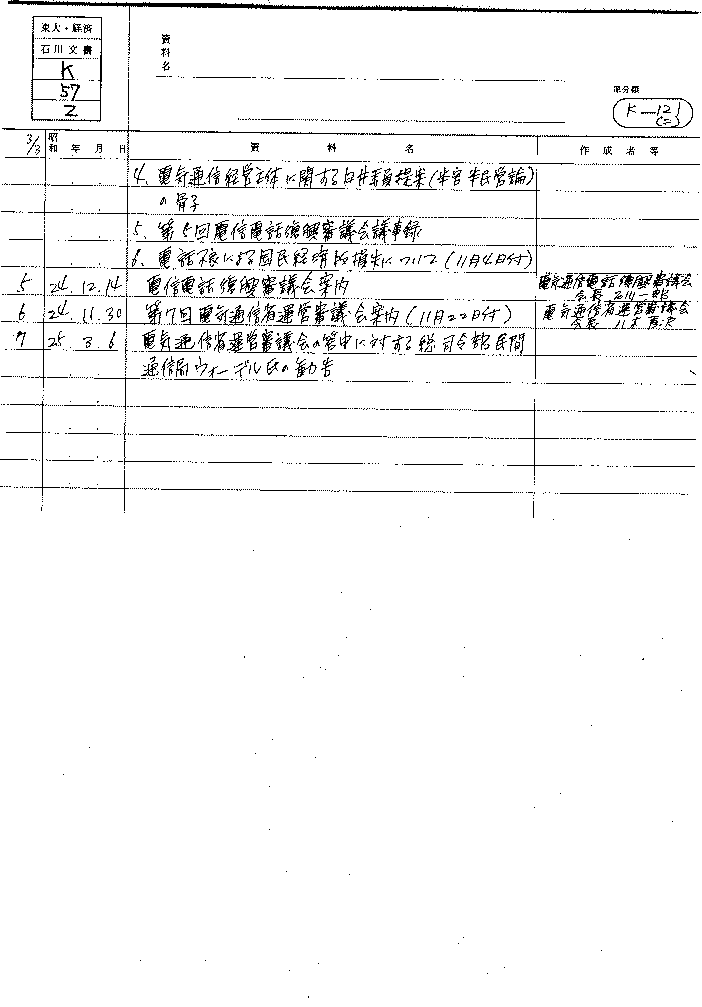 東大・経済
石川文書
K
57
2
資料名
原分類
K-121
(=)
3/3 昭和 年 月 日 資料名 作成者等
4. 電気通信経営主体に関する白井委員提案(半官半民営論)
の骨子
5. 第5回電信電話復興審議会議事録
6. 電話不良による国民経済的損失について(11月4日付)
5 24. 12. 14 電信電話復興審議会案内 電気通信電話復興審議会
会長 石川一郎
6 24. 11. 30 第7回電気通信省運営審議会案内(11月22日付) 電気通信省運営審議会
会長
7 25 3 6 電気通信省運営審議会の答申に対する総司令部民間
通信局ウォーデル氏の勧告